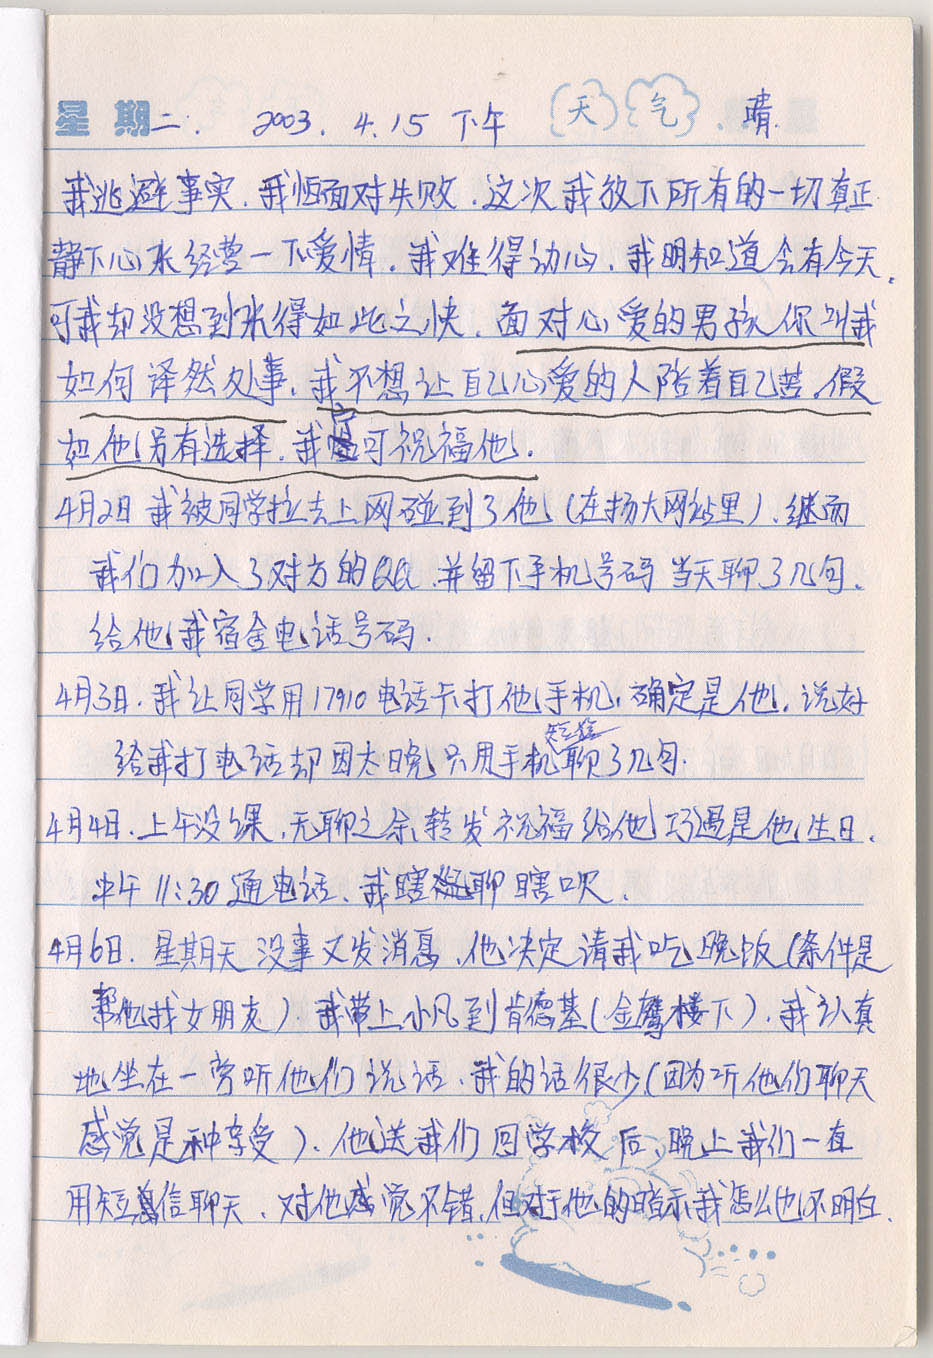 星期二. 2003. 4.15 下午 天气 晴.
我逃避事实.我怕面对失败.这次我放下所有的一切真正
静下心来经营一下爱情.我难得动心.我明知道会有今天.
可我却没想到来得如此之快.面对心爱的男孩你叫我
如何译然处事.我不想让自己心爱的人陪着自己苦.假
如他另有选择.我宁可祝福他.
4月2日 我被同学拉去上网碰到了他(在扬大网站里).继而
我们加入了对方的QQ.并留下手机号码 当天聊了几句.
给他我宿舍电话号码.
4月3日.我让同学用17910电话卡打他手机.确定是他.说好
给我打电话却因太晚只用手机短信聊了几句.
4月4日.上午没课.无聊之余转发祝福给他巧遇是他生日.
中午11:30通电话.我瞎聊瞎吹.
4月6日.星期天没事又发消息.他决定请我吃晚饭(条件是
帮他找女朋友)我带上小凡到肯德基(金鹰楼下).我认真
地坐在一旁听他们说话.我的话很少(因为听他们聊天
感觉是种享受).他送我们回学校后,晚上我们一直
用短信聊天.对他感觉不错.但对于他的暗示我怎么也不明白.